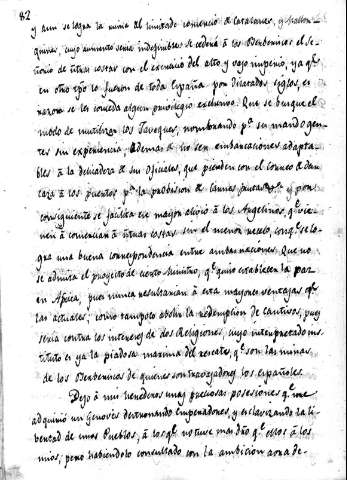 82
y aun se logra la ruina del limitado comercio de Catalanes, y Mallor-
quines, cuyo aumento sería indefectible si cediera à los Berberiscos el Se-
ñorio de ntras costas con el exercicio del alto y vajo ingenio, ya qe
en otro tpo lo fueron de toda España por dilatados siglos, es
razon se les conceda algun privilegio exclusivo. Que se busque el
modo de inutilizar los Javeques, nombrando pa su mando gen-
tes sin experiencia, ademas de no ser embarcaciones adapta-
bles à la delicadeza de sus oficiales, que pierden con el
à los puertos pa la provision de y por
consiguiente se facilita en mayor alivio à los Argelinos, qe vie-
nen à comerciar à ntras costas sin el menor recelo, con qe se lo-
gra una buena correspondencia entre ambas naciones. Que no
se admita el proyecto de cierto Ministro, qe quiso establecer la paz
en Africa, pues nunca resultarian à esta mayores ventajas qe
las actuales; como tampoco abolir la redempcion de Cautivos, pues
seria contra los intereses de dos Religiones, cuyo interpretado ins-
tituto es ya la piadosa maxima del rescate, qe son las minas
de los Berberiscos de quienes son travajadores los españoles.
Dejo à mis herederos unas preciosas posesiones qe me
adquirió un Genovés destronando Emperadores, y esclavizando la li-
bertad de unos Pueblos, à los qe no tuve mas dro qe ellos à los
mios; pero habiendolo consultado con la ambicion acra de-